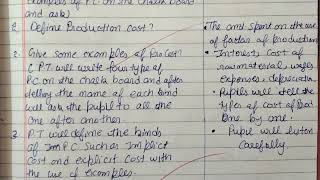 examples of P.C on the chalk board
and ask)
2. Define Production cost?
3. Give some examples of Pro cost?
( P.T will write four type of
P.C on the chalk board and after
telling the name of each kind
will ask the pupil to all the
one after another.
3. P.T will define the kinds
of ImPC Such as Implict
Cost and explicit Cost with
the use of examples.
The amt spent on the use
of factor of production
• Interest, cost of
raw material, wages
expenses & depreciation.
• Pupils will tell the
types of cost of Prod
One by one.
• Pupil will listen
Carefully.